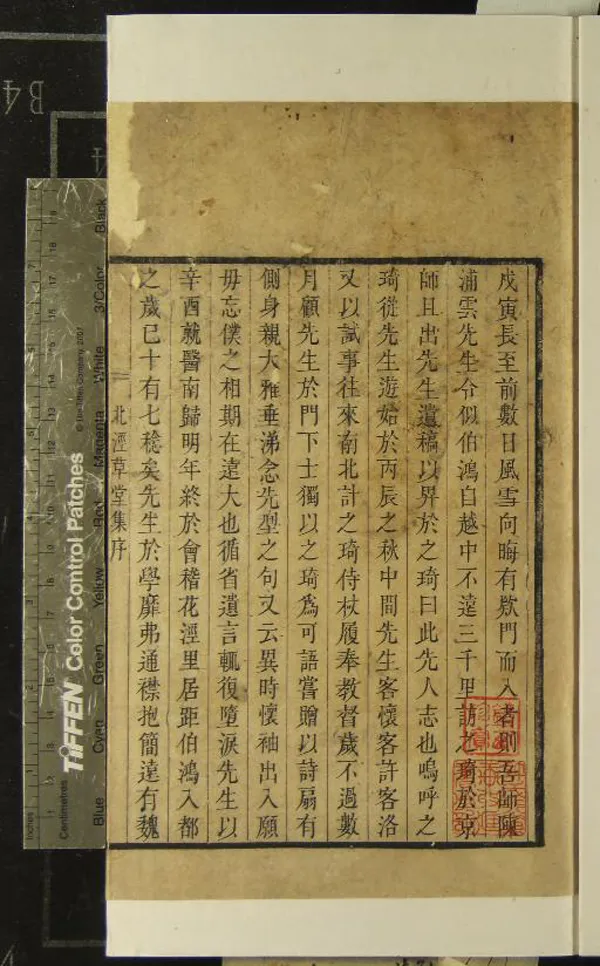 戊寅長至前數日風雪向晦有欵門而入者則吾師陳
浦雲先生令似伯鴻自越中不遠三千里訪之琦於京
師且出先生遺稿以畀於之琦曰此先人志也嗚呼之
琦從先生遊始於丙辰之秋中間先生客懷客許客洛
又以試事往來南北計之琦侍杖履奉教督歲不過數
月顧先生於門下士獨以之琦爲可語嘗贈以詩扇有
側身親大雅垂涕念先型之句又云異時懷袖出入願
毋忘僕之相期在遠大也循省遺言輒復墮淚先生以
辛酉就醫南歸明年終於會稽花涇里居距伯鴻入都
之歲已十有七稔矣先生於學靡弗通襟抱簡遠有魏
北涇草堂集序
TIFFEN Color Control Patches
© The Tiffen Company, 2007
Centimetres
Inches
Blue
Cyan
Green
Yellow
Red
Magenta
White
3/Color
Black
B4